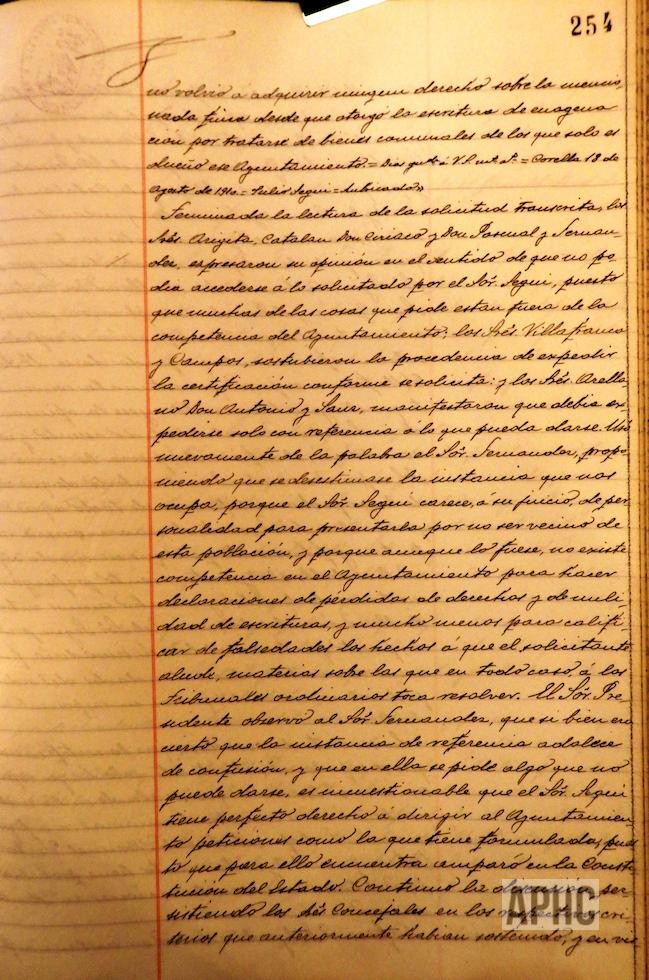 254
no volvió á adquirir ningun derecho sobre la mencio-
nada finca desde que otorgó la escritura de enagena
cion por tratarse de bienes comunales de los que solo es
dueño ese Ayuntamiento.= Dios gue. á V.S. m.s a.s = Corella 18 de
Agosto de 1910 = Julio Segui = Rubricado»
Terminada la lectura de la solicitud transcrita, los
Srés. Arigita, Catalan Don Ciriaco y Don Pascual y Fernan-
dez, expresaron su opinión en el sentido de que no po
dia accederse á lo solicitado por el Sór. Segui, puesto
que muchas de las cosas que pide estan fuera de la
competencia del Ayuntamiento; los Srés. Villafranca
y Campos, sostubieron la procedencia de expedir
la certificación conforme se solicita; y los Srés. Arella-
no Don Antonio y Sanz, manifestaron que debia ex-
pedirse solo con referencia á lo que pueda darse. Usó
nuevamente de la palabra el Sór. Fernandez, propo-
niendo que se desestimase la instancia que nos
ocupa, porque el Sór. Segui carece, á su juicio, de per
sonalidad para presentarla por no ser vecino de
esta población, y porque aunque lo fuese, no existe
competencia en el Ayuntamiento para hacer
declaraciones de pérdidas de derechos y de nuli-
dad de escrituras, y mucho menos para califi-
car de falsedades los hechos á que el solicitante
alude, materias sobre las que en todo caso, á los
Tribunales ordinarios toca resolver. El Sór. Pre-
sidente observó al Sór. Fernandez, que si bien era
cierto que la instancia de referencia adolece
de confusión, y que en ella se pide algo que no
puede darse, es incuestionable que el Sór. Segui
tiene perfecto derecho á dirigir al Ayuntamien-
to peticiones como la que tiene formulada, pues
to que para ello encuentra amparo en la Consti
tucion del Estado. Continuó la discusion per-
sistiendo los Srés Concejales en los respectivos cri-
terios que anteriormente habian sostenido, y en vis-
APHC